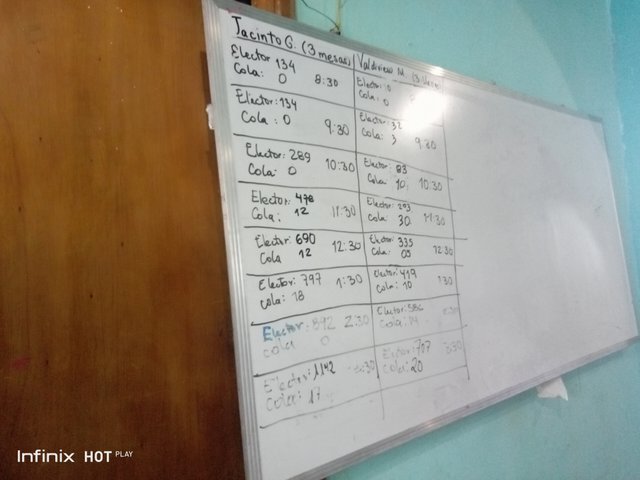 Jacinto G. (3 mesas)
Elector 134
Cola: 0 8:30
Elector: 134
Cola: 0 9:30
Elector: 289
Cola: 0 10:30
Elector: 478
Cola: 12 11:30
Elector: 690
Cola 12 12:30
Elector: 797
cola: 18 1:30
Elector: 892 2:30
cola 0
Elector: 1142 3:30
Cola: 17
Valdivieso M. (3
Elector: 0
Cola: 0
Elector: 32
Cola: 3 9:30
Elector: 83
Cola: 10 10:30
Elector: 203
Cola: 30 11:30
Elector: 335
Cola: 05 12:30
Elector: 419
Cola: 10 1:30
Elector: 586
Cola:
Elector: 707 3:30
Cola: 20
Infinix HOT PLAY